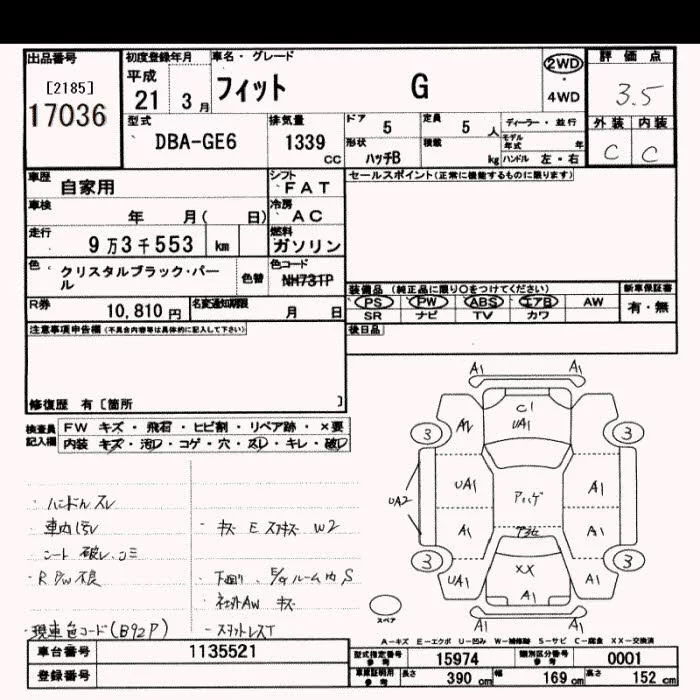 出品番号 初度登録年月 車名・グレード 評価点
[2185] 平成 フィット G 2WD・4WD 3.5
17036 21 3月
型式 排気量 ドア 5 定員 5人 ディーラー・並行 外装 内装
DBA-GE6 1339CC 形状 ハッチB 積載 kg モデル年式 年 ハンドル 左・右 C C
車歴 自家用 シフト FAT セールスポイント(正常に機能するものに限ります)
車検 年 月( 日) 冷房 AC
走行 9万3千553 km 燃料 ガソリン
色 クリスタルブラック・パール 色替 色コード NH731P
装備品 (純正品に限り○をつけてください) 新車保証書
PS PW ABS エアB AW 有・無
SR ナビ TV カワ
R券 10,810円 名変通知期限 月 日
後日品
注意事項申告欄(不具合内容等は具体的に記入して下さい)
修復歴 有[箇所 ]
検査員記入欄 FW キズ・飛石・ヒビ割・リペア跡・×要
内装 キズ・汚レ・コゲ・穴・スレ・キレ・破レ
・ハンドルスレ
・車内汚レ ・キズ E スリキズ W2
・シート 破レ、コミ
・R P/W 不良 ・下廻リ、E/gルーム内 S
・社外AW キズ
・現車色コード(B92P)
A1 A1
C1
UA1
3 3
UA1 A1
UA2
A1 A1
3 3
XX
UA1 A1 A1
A1 A1
スペア
A-キズ E-エクボ U-凹み W-補修跡 S-サビ C-腐食 XX-交換済
車台番号 1135521 型式指定番号 参考 15974 類別区分番号 参考 0001
登録番号 車庫証明用 参考 長さ 390cm 幅 169cm 高さ 152cm